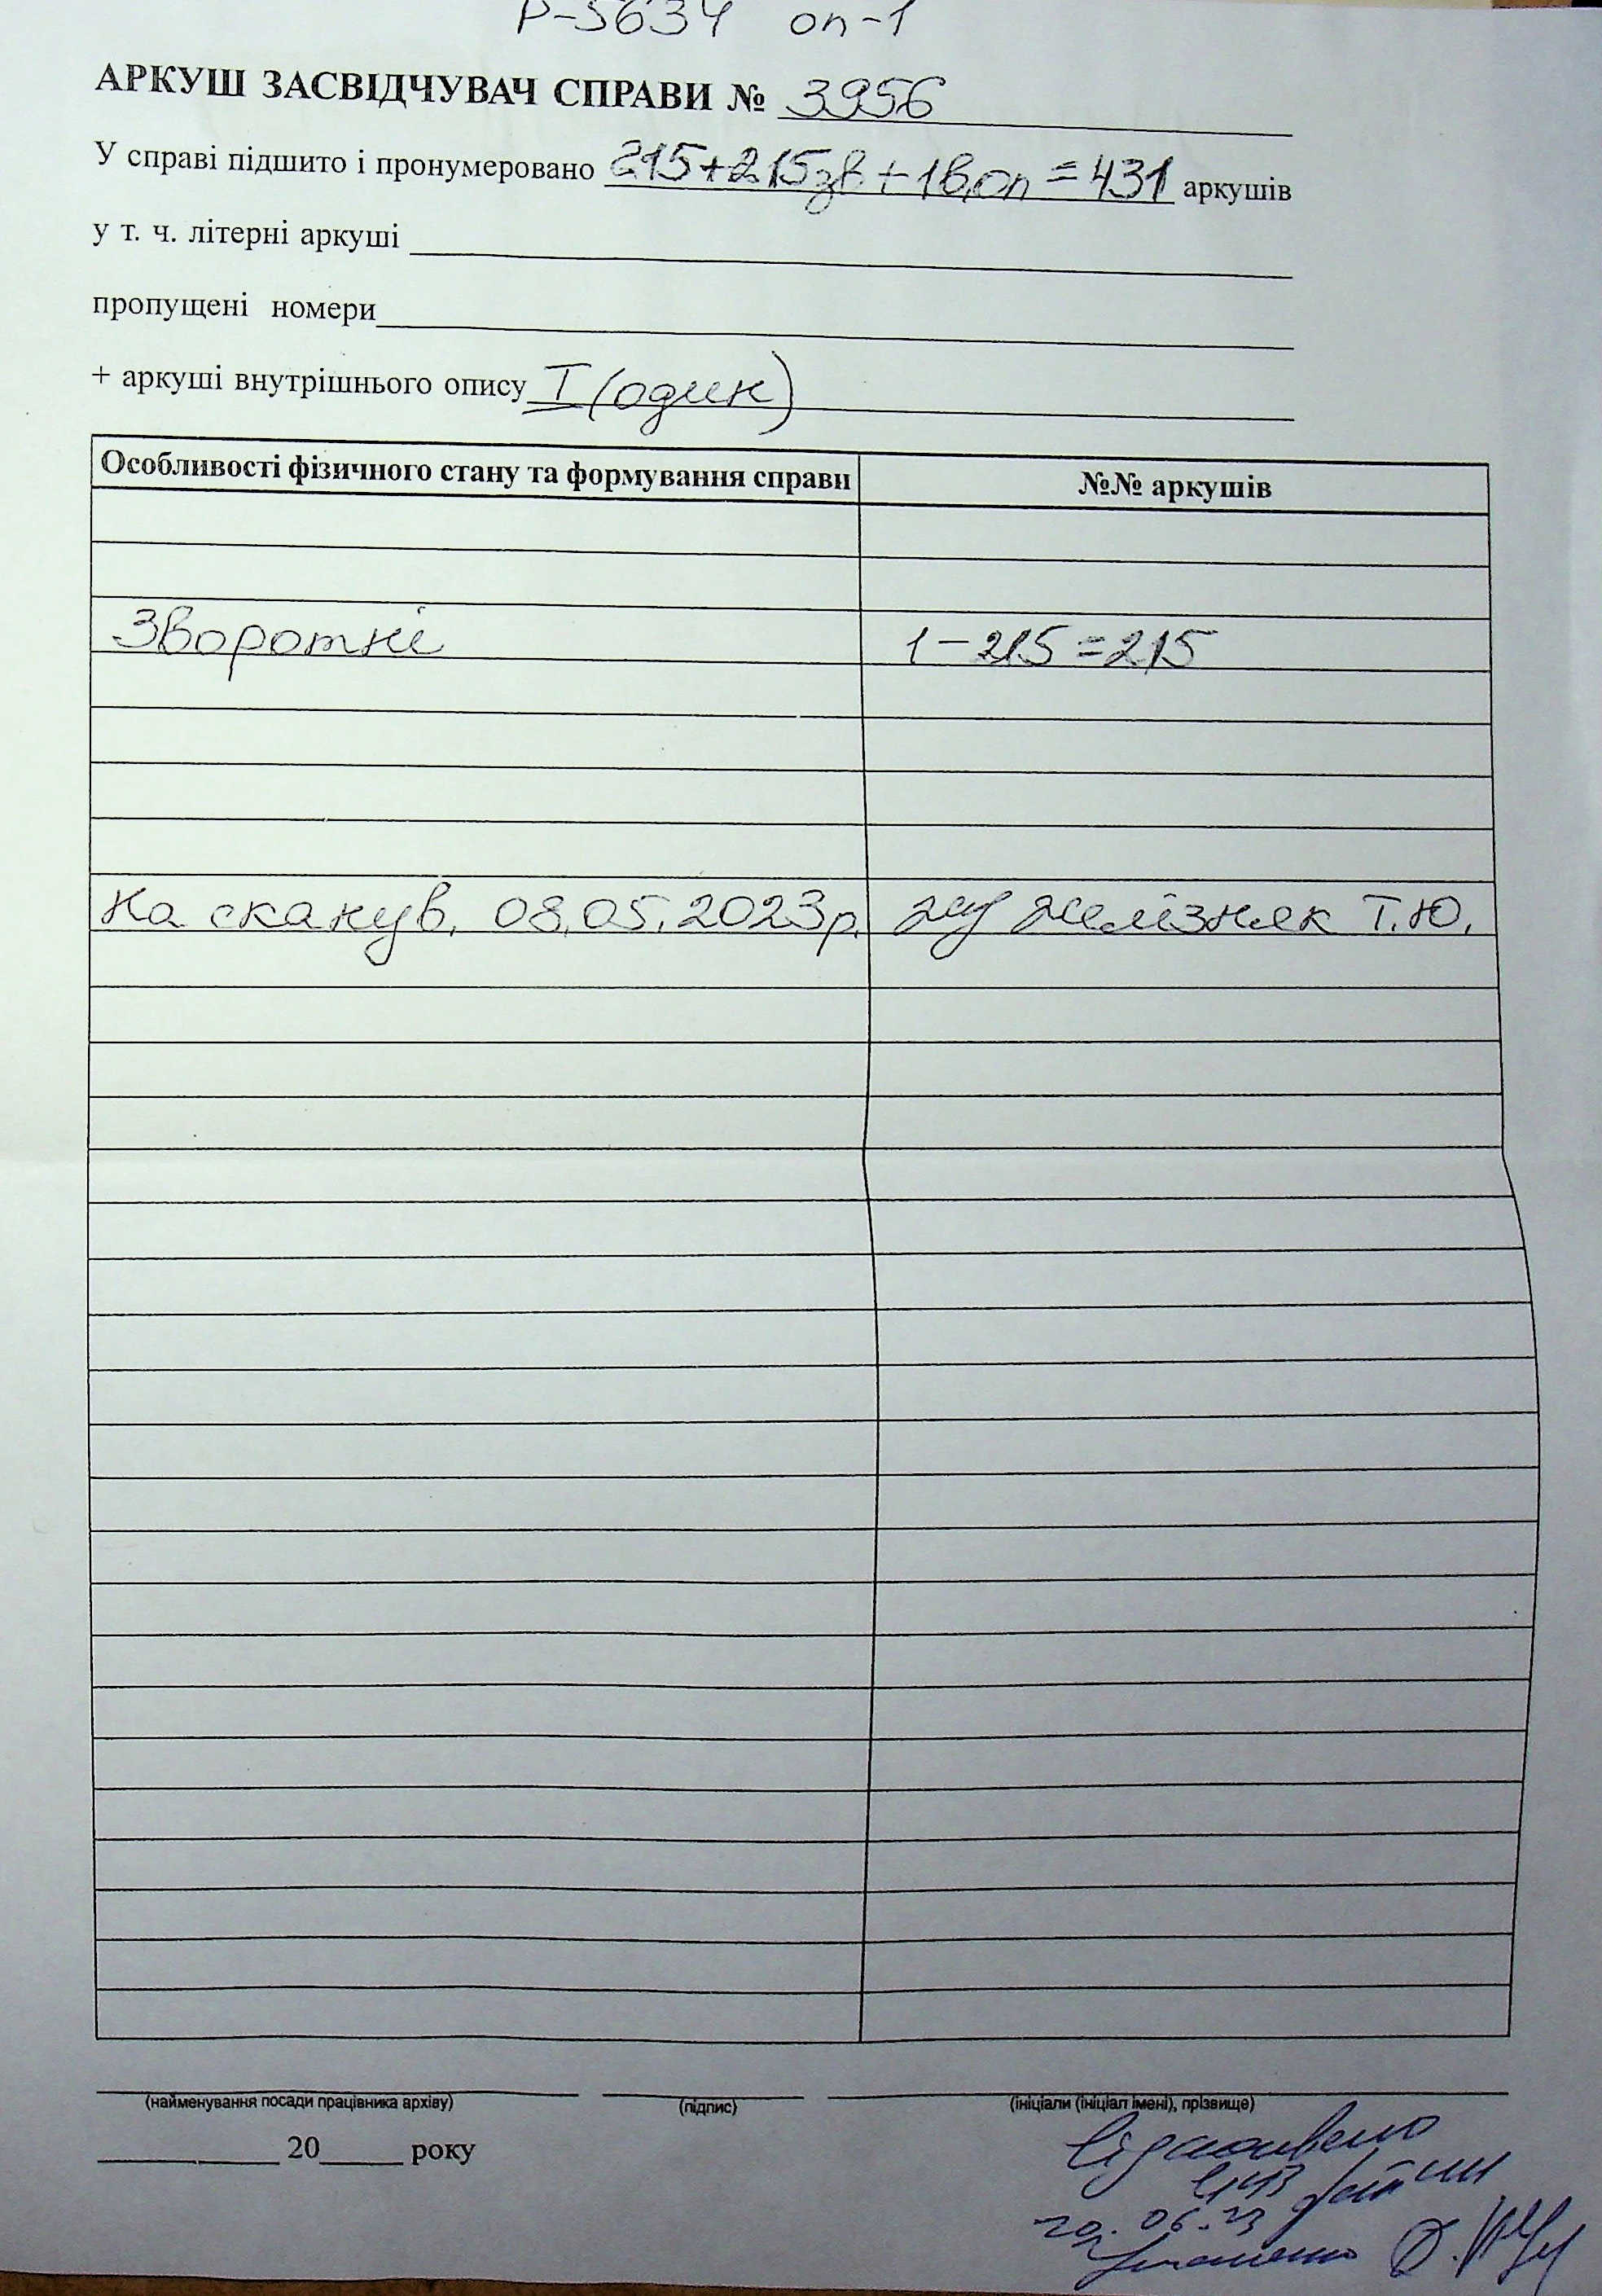 Р-5634 оп-1
АРКУШ ЗАСВІДЧУВАЧ СПРАВИ № 3956
У справі підшито і пронумеровано 215+215зв+1в.оп=431 аркушів
у т. ч. літерні аркуші
пропущені номери
+ аркуші внутрішнього опису I (один)
Особливості фізичного стану та формування справи №№ аркушів
Зворотні 1-215=215
На сканув. 08.05.2023р. Желізняк Т.Ю.
(найменування посади працівника архіву) (підпис) (ініціали (ініціал імені), прізвище)
20 року
Відскановено
файли
20.06.23